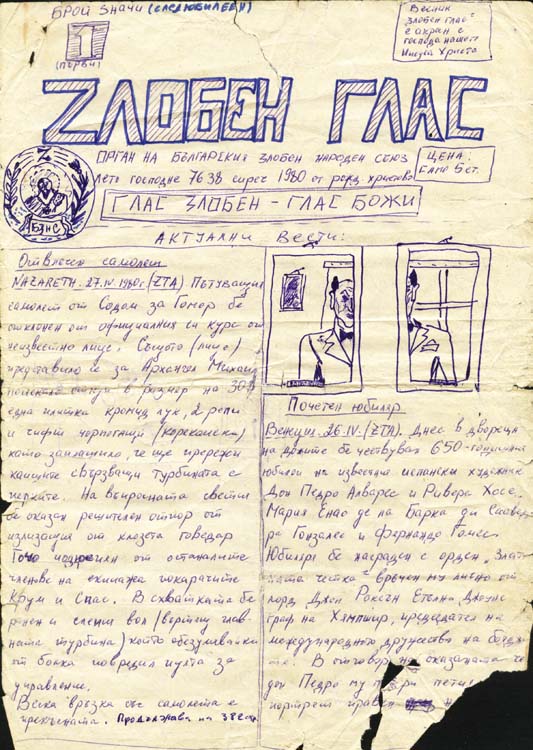 БРОЙ ЗНАЧИ (СЛЕДЮБИЛЕЕН)
1
(ПЪРВИ)
Весник
"Злобен глас"
е акран с
господа нашего
Исуса Христа
ZЛОБЕН ГЛАС
ОРГАН НА БЪЛГАРСКИЯ ЗЛОБЕН НАРОДЕН СЪЮЗ
Лето господне 7638 сиреч 1980 от рожд. христово
ЦЕНА:
САМО 5 ст.
БЗНС
ГЛАС ЗЛОБЕН - ГЛАС БОЖИ
АКТУАЛНИ ВЕСТИ:
Отвлечен самолет
NAZARETH. 27.IV.1980г. (ZTA) Пътуващия
самолет от Содом за Гомор бе
отклонен от официалния си курс от
неизвестно лице. Същото (лице)
представило се за Архангел Михаил
поиска откуп в размер на 30$
една плитка кромид лук, 2 репи
и чифт чорпогащи (корекомски)
като заплашило, че ще прережи
каишите свързващи турбината с
перките. На въпросната светия
бе оказан решителен отпор от
излизащия от клозета говедар
Гочо подкрепен от останалите
членове на екипажа чокаратите
Крум и Спас. В схватката бе
ранен и слепия вол (вертящ глав-
ната турбина) който обезумявайки
от болка повредил пулта за
управление.
Всяка връзка със самолета е
прекъсната. Продължава на 382 стр.
Почетен юбиляр
Венеция. 26.IV. (ZTA). Днес в двореца
на дожите бе чествуван 650-годишния
юбилей на известния испански художник
Дон Педро Алварес и Ривера Хосе
Мария Енао де ла Барка дел Салвадо-
ра Гонзалес и Фернандо Гомес
Юбилярят бе награден с орден "Злат-
ната четка" връчен му лично от
лорд Джон Роксън Етелна Джоунс
граф на Хямпшир, председател на
международното дружество на
В отговор на оказаната
дон Педро му
портрет правен